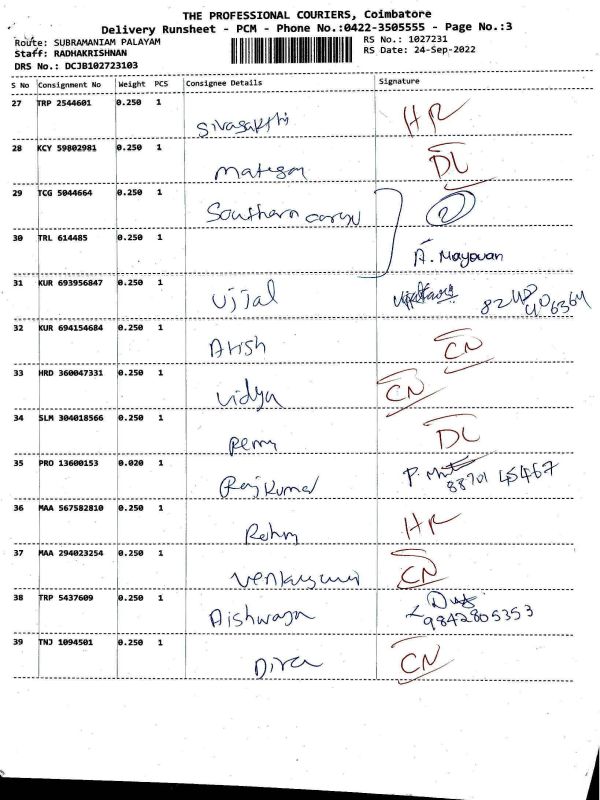 THE PROFESSIONAL COURIERS, Coimbatore
Delivery Runsheet - PCM - Phone No.:0422-3505555 - Page No.:3
Route: SUBRAMANIAM PALAYAM RS No.: 1027231
Staff: RADHAKRISHNAN RS Date: 24-Sep-2022
DRS No.: DCJB102723103
S No Consignment No Weight PCS Consignee Details Signature
27 TRP 2544601 0.250 1 Sivasakthi HR
28 KCY 59802981 0.250 1 DL
29 TCG 5044664 0.250 1 Southern cargo 2
30 TRL 614485 0.250 1 A. Mayavan
31 KUR 693956847 0.250 1 Ujjal
32 KUR 694154684 0.250 1 Atish CN
33 HRD 360047331 0.250 1 Vidya CN
34 SLM 304018566 0.250 1 DL
35 PRO 13600153 0.020 1 Rajkumar P. 88701 45467
36 MAA 567582810 0.250 1 HR
37 MAA 294023254 0.250 1 CN
38 TRP 5437609 0.250 1 Aishwarya 9842805353
39 TNJ 1094501 0.250 1 CN